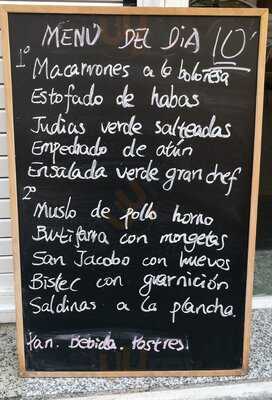 MENÚ DEL DIA 10'
1º
Macarrones a la boloñesa
Estofado de habas
Judias verde salteadas
Empedrado de atún
Ensalada verde gran chef
2º
Muslo de pollo horno
Butifarra con mongetas
San Jacobo con huevos
Bistec con guarnición
Saldinas a la plancha.
Pan. Bebida. Postres